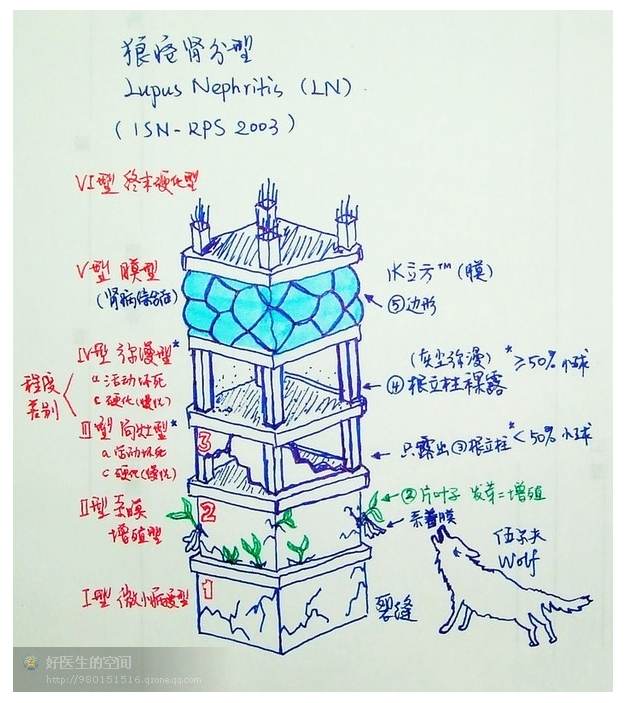 狼疮肾分型
Lupus Nephritis (LN)
(ISN-RPS 2003)
VI型 终末硬化型
V型 膜型
(肾病综合征)
水立方™(膜)
⑤边形
IV型 弥漫型*
a 活动坏死
c 硬化(慢优)
程度
差别
(灰尘弥漫)*≥50%小球
④根立柱裸露
III型 局灶型*
a 活动坏死
c 硬化(慢优)
3
只露出③根立柱*<50%小球
II型 系膜
增殖型
2
②片叶子 发芽=增殖
系着膜
I型 微小病变型
1
裂缝
伍尔夫
Wolf
好医生的空间
http://980151516.qzone.qq.com